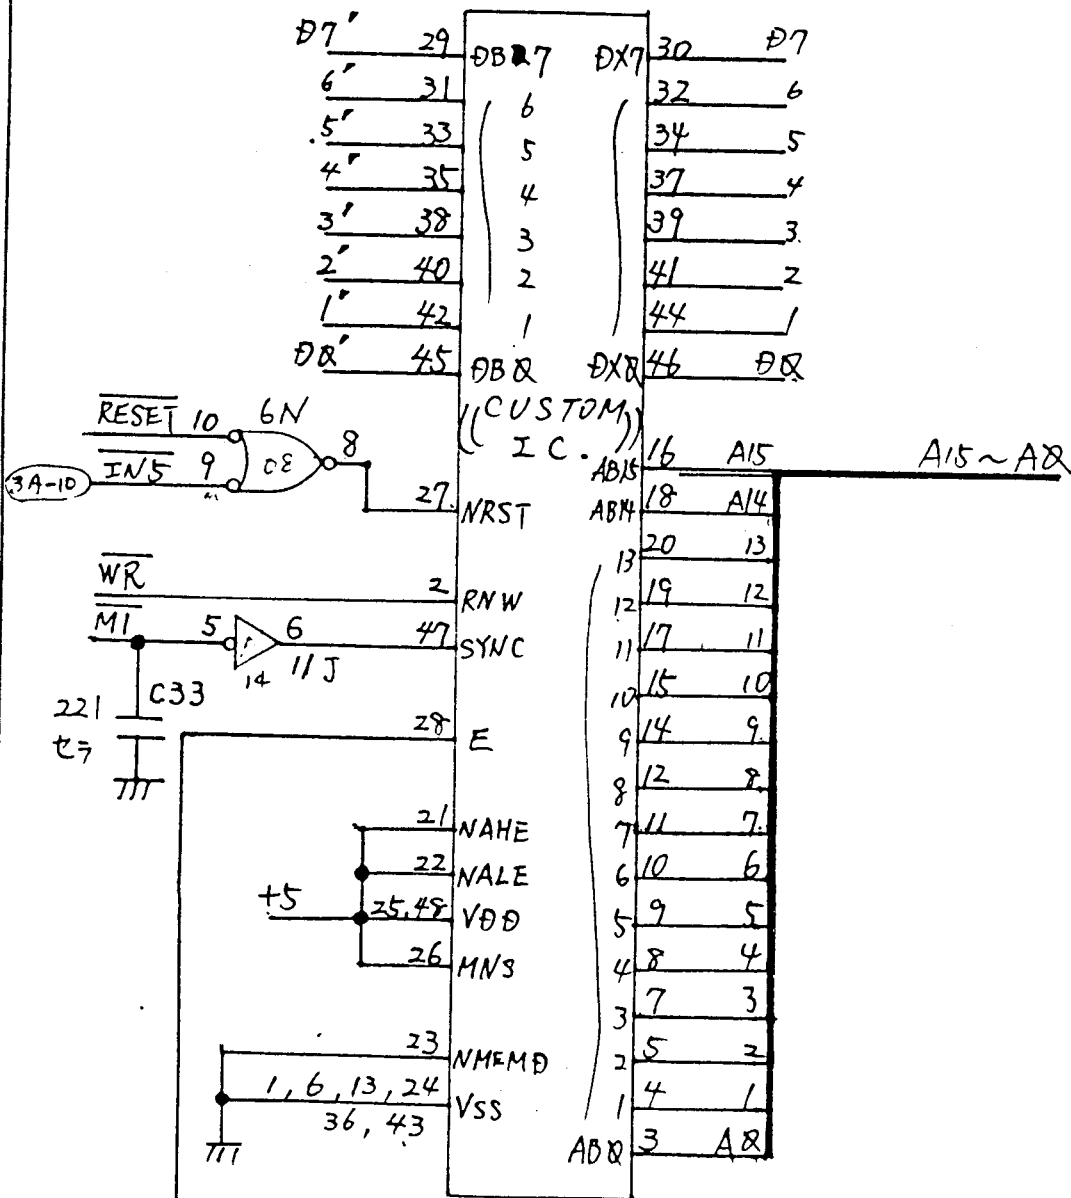 D7' 29 DB7 DX7 30 D7
6' 31 6 32 6
5' 33 5 34 5
4' 35 4 37 4
3' 38 3 39 3
2' 40 2 41 2
1' 42 1 44 1
D0' 45 DB0 DX0 46 D0
((CUSTOM IC.))
RESET 10 6N 8
3A-10 IN5 9
27 NRST
WR 2 RNW
M1 5 6 47 SYNC
14 11J
C33
221
セラ
28 E
21 NAHE
22 NALE
+5 25,48 VDD
26 MNS
23 NMEMD
1, 6, 13, 24 VSS
36, 43
AB15 16 A15 A15~A0
AB14 18 A14
13 20 13
12 19 12
11 17 11
10 15 10
9 14 9
8 12 8
7 11 7
6 10 6
5 9 5
4 8 4
3 7 3
2 5 2
1 4 1
AB0 3 A0